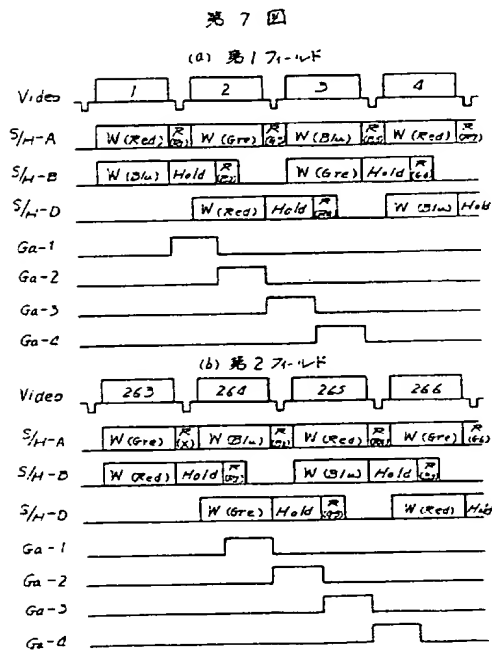 第 7 図
(a) 第1フィールド
Video 1 2 3 4
S/H-A W(Red) W(Gre) W(Blu) W(Red)
S/H-B W(Blu) Hold W(Gre) Hold
S/H-D W(Red) Hold W(Blu) Hold
Ga-1
Ga-2
Ga-3
Ga-4
(b) 第2フィールド
Video 263 264 265 266
S/H-A W(Gre) R (X) W(Blu) W(Red) W(Gre)
S/H-B W(Red) Hold W(Blu) Hold
S/H-D W(Gre) Hold W(Red) Hold
Ga-1
Ga-2
Ga-3
Ga-4